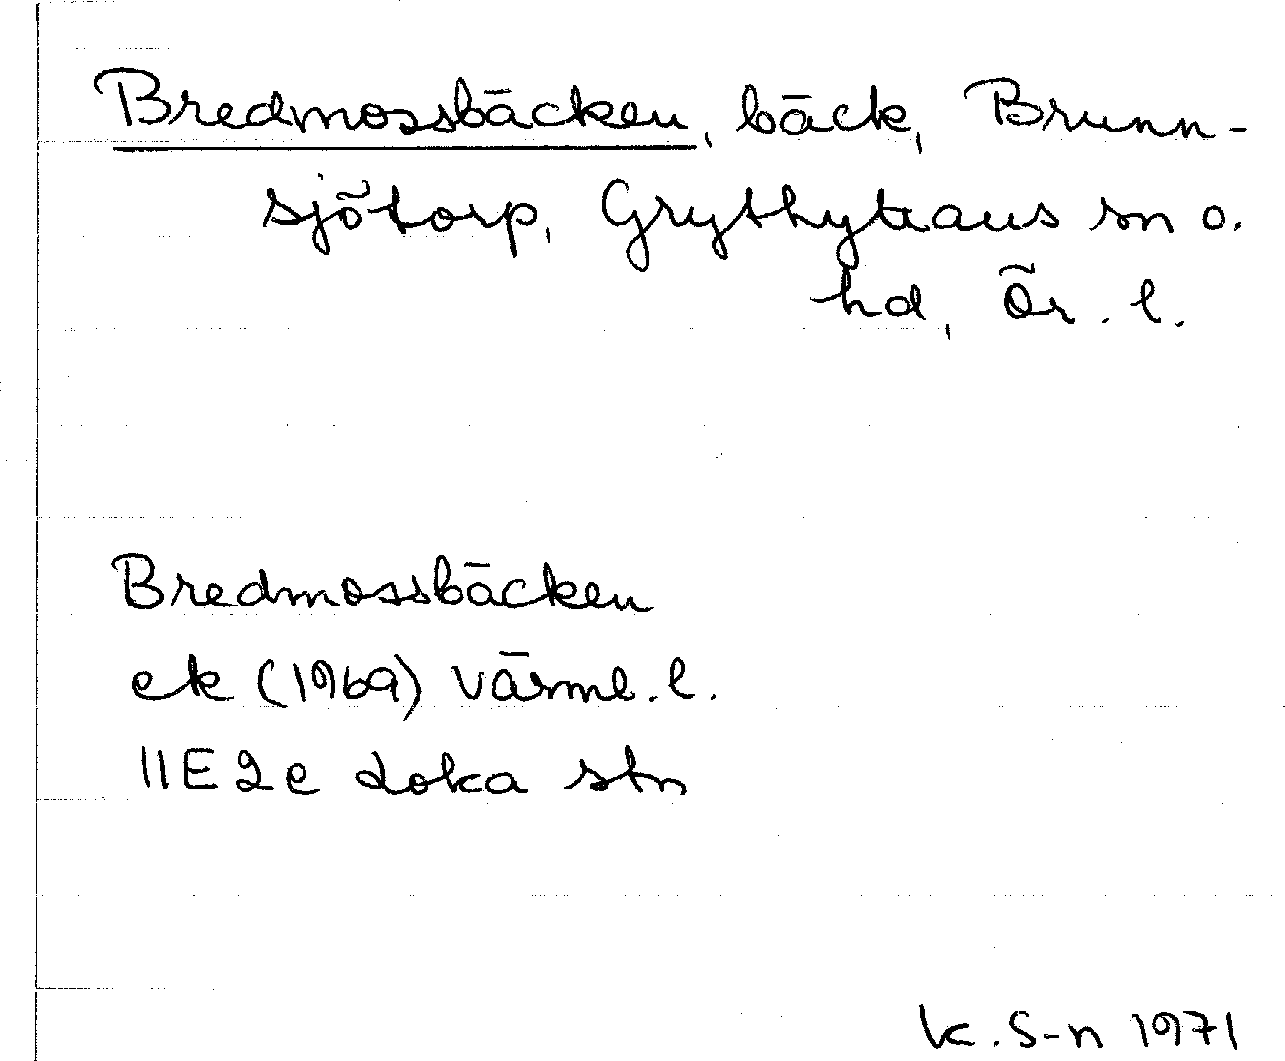 Bredmossbäcken, bäck, Brunn-
sjötorp, Grythyttans sn o.
hd, Ör. l.
Bredmossbäcken
ek (1969) Värml. l.
11E 2e Loka stn
K. S-n 1971